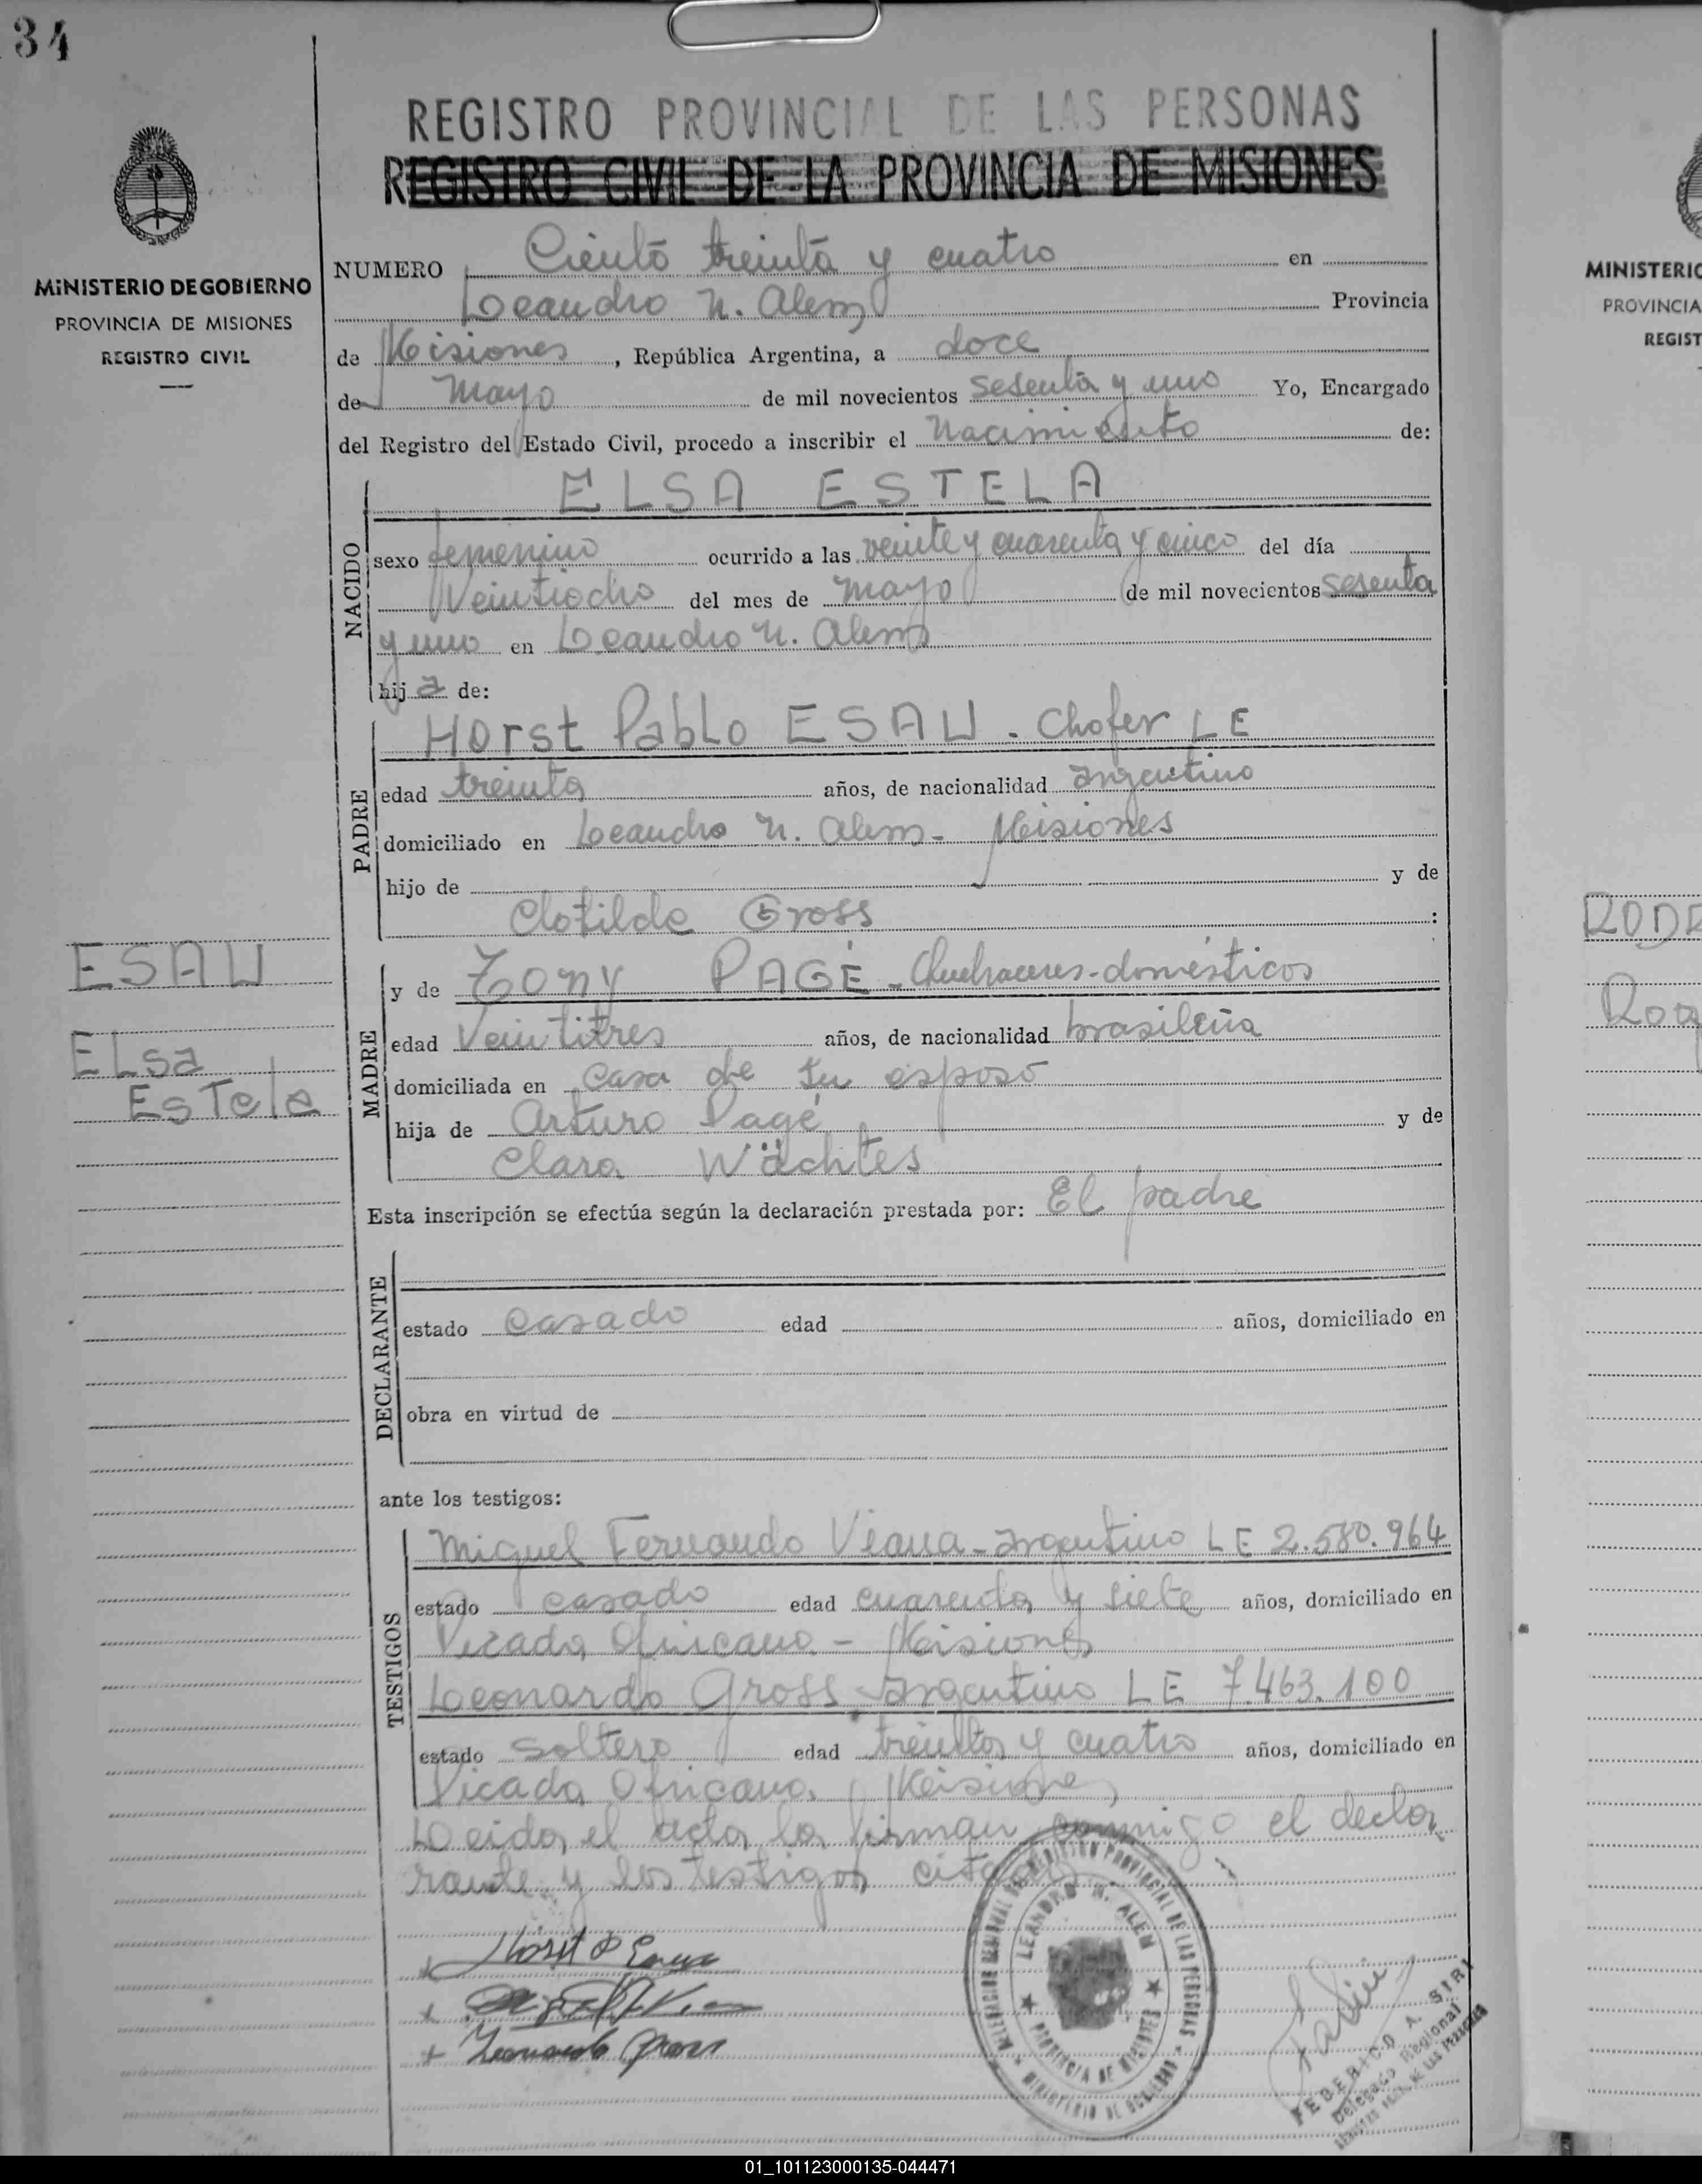 34
MINISTERIO DE GOBIERNO
PROVINCIA DE MISIONES
REGISTRO CIVIL
REGISTRO PROVINCIAL DE LAS PERSONAS
REGISTRO CIVIL DE LA PROVINCIA DE MISIONES
NUMERO Ciento treinta y cuatro en
Leandro N. Alem Provincia
de Misiones, República Argentina, a doce
de Mayo de mil novecientos sesenta y uno Yo, Encargado
del Registro del Estado Civil, procedo a inscribir el Nacimiento de:
NACIDO
ELSA ESTELA
sexo femenino ocurrido a las veinte y cuarenta y cinco del día
Veintiocho del mes de mayo de mil novecientos sesenta
y uno en Leandro N. Alem
hija de:
PADRE
Horst Pablo ESAU. Chofer LE
edad treinta años, de nacionalidad argentino
domiciliado en Leandro N. Alem - Misiones
hijo de y de
Clotilde Gross :
ESAU
Elsa
Estela
MADRE
y de Tony PAGÉ - Quehaceres-domésticos
edad Veintitres años, de nacionalidad brasileña
domiciliada en casa de su esposo
hija de Arturo Pagé y de
Clara Wächtes
Esta inscripción se efectúa según la declaración prestada por: El padre
DECLARANTE
estado casado edad años, domiciliado en
obra en virtud de
ante los testigos:
TESTIGOS
Miguel Fernando Viana - argentino LE 2.580.964
estado casado edad cuarenta y siete años, domiciliado en
Picada Africana - Misiones
Leonardo Gross - argentino LE 7.463.100
estado soltero edad treinta y cuatro años, domiciliado en
Picada Africana. Misiones
Leida el acta la firman conmigo el decla
rante y los testigos citados
Horst P Esau
Leonardo Gross
LEANDRO N. ALEM
PROVINCIA DE MISIONES
PROVINCIAL DE LAS PERSONAS
MINISTERIO DE GOBIERNO
FEDERICO A. SIRI
Delegado Regional
MINISTERIO
PROVINCIA
REGIST
RODR
01_101123000135-044471